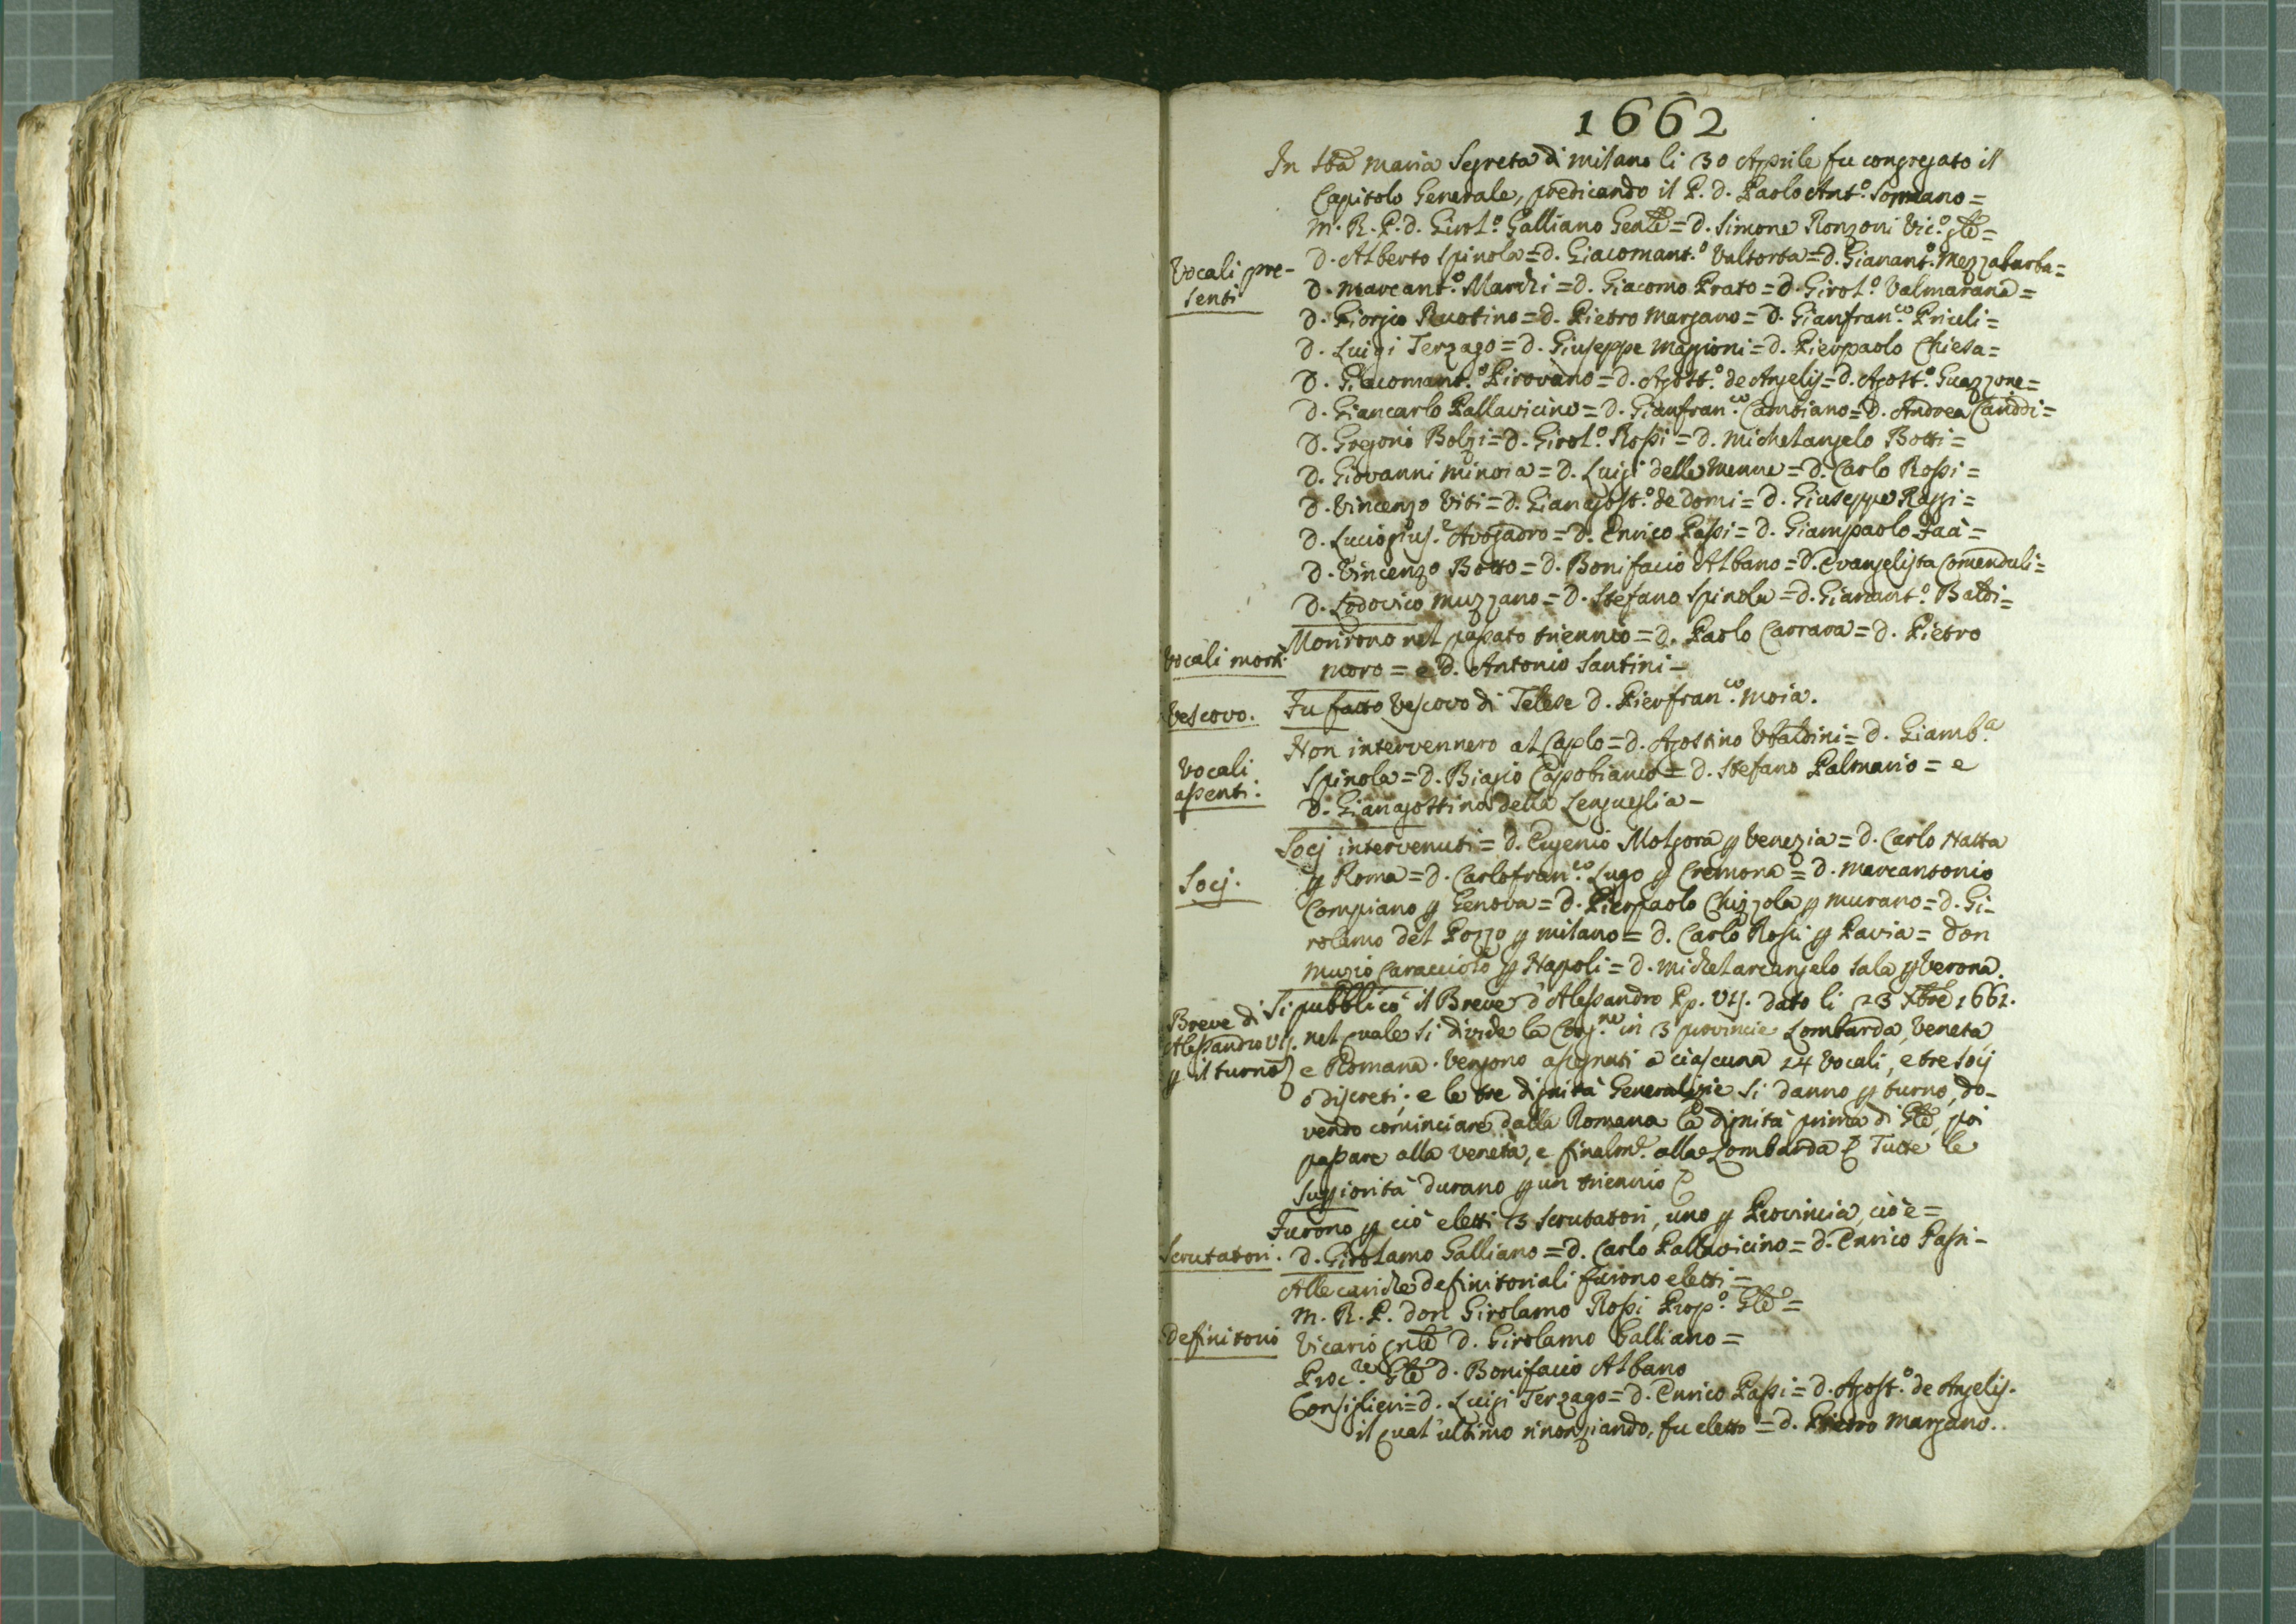 1662
In Sta Maria Segreta di Milano li 30 Aprile fu congregato il
Capitolo Generale, predicando il P. D. Paolo Ant.º Sormano =
Vocali pre-
senti
M. R. P. D. Girol.º Galliano Genle = D. Simone Ronzoni Vic.º gle =
D. Alberto Spinola = D. Giacomant.º Valtorta = D. Gianant.º Mezzabarba =
D. Marcant.º Marchi = D. Giacomo Prato = D. Girol.º Valmarana =
D. Giorgio Ruotino = D. Pietro Margano = D. Gianfran.co Priuli =
D. Luigi Terzago = D. Giuseppe Maggioni = D. Pierpaolo Chiesa =
D. Giacomant.º Pirovano = D. Agost.º de Angelis = D. Agost.º Guazzone =
D. Giancarlo Pallavicino = D. Gianfran.co Cambiano = D. Andrea Canddi =
D. Gregorio Bolzi = D. Girol.º Rossi = D. Michelangelo Botti =
D. Giovanni Minoia = D. Luigi delle Menne = D. Carlo Rossi =
D. Vincenzo Viti = D. Gianagost.º de Domi = D. Giuseppe Raggi =
D. Luciogius.e Avogadro = D. Enrico Passi = D. Giampaolo Faà =
D. Vincenzo Botto = D. Bonifacio Albano = D. Evangelista Comenduli =
D. Lodovico Muzzano = D. Stefano Spinola = D. Gianant.º Baldi =
Vocali morti
Morirono nel passato triennio = D. Paolo Carrara = D. Pietro
Moro = e D. Antonio Santini -
Vescovo.
Fu fatto Vescovo di Telese D. Pierfran.co Moia.
Vocali
assenti.
Non intervennero al Caplo = D. Agostino Ubaldini = D. Giamb.a
Spinola = D. Biagio Capobianco = D. Stefano Palmario = e
D. Gianagostino della Lengueglia -
Socj.
Socj intervenuti = D. Eugenio Molgora p Venezia = D. Carlo Natta
p Roma = D. Carlofran.co Lugo p Cremona = D. Marcantonio
Compiano p Genova = D. Pierpaolo Chizzola p Murano = D. Gi-
rolamo del Pozzo p Milano = D. Carlo Rossi p Pavia = Don
Muzio Caracciolo p Napoli = D. Michelarcangelo Sala p Verona.
Breve di
Alessandro VIJ.
p il turno
Si pubblicò il Breve d'Alessandro Pp. VIJ. dato li 23 Xbre 1661.
nel quale si divide la Cong.ne in 3 provincie Lombarda, Veneta,
e Romana. Vengono assegnati a ciascuna 14 Vocali, e tre Socij
ò discreti; e le tre dignità Generalizie si danno p turno, do-
vendo cominciare dalla Romana la dignità prima di Gle, poi
passare alla Veneta, e finalm.e alla Lombarda. Tutte le
Superiorità durano p un triennio
Scrutatori.
Furono p ciò eletti 3 Scrutatori, uno p Provincia, cioè =
D. Girolamo Galliano = D. Carlo Pallavicino = D. Enrico Passi -
Definitorio
Alle cariche definitoriali furono eletti =
M. R. P. Don Girolamo Rossi Prep.º Gle =
Vicario gnle D. Girolamo Galliano =
Proc.re Gle D. Bonifacio Albano
Consiglieri = D. Luigi Terzago = D. Enrico Passi = D. Agost.º de Angelis.
il qual ultimo rinonziando, fu eletto = D. Pietro Margano.